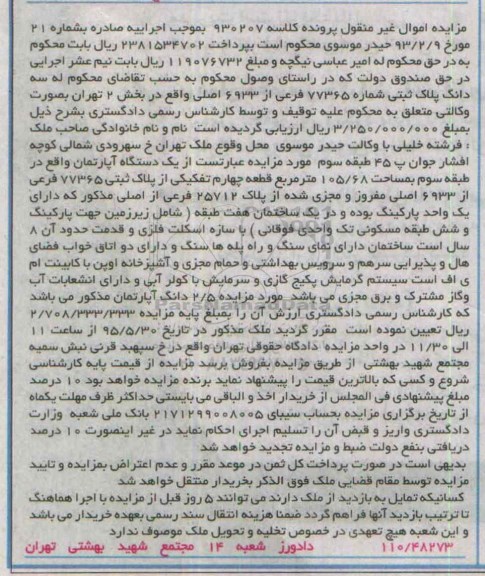 مزایده اموال غیر منقول پرونده کلاسه ۹۳۰۲۰۷ بموجب اجراییه صادره بشماره ۲۱
مورخ ۹۳/۲/۹ حیدر موسوی محکوم است بپرداخت ۲۳۸۱۵۳۴۷۰۲ ریال بابت محکوم
به در حق محکوم له امیر عباسی نیگچه و مبلغ ۱۱۹۰۷۶۷۳۲ ریال بابت نیم عشر اجرایی
در حق صندوق دولت که در راستای وصول محکوم به حسب تقاضای محکوم له سه
دانگ پلاک ثبتی شماره ۷۷۳۶۵ فرعی از ۶۹۳۳ اصلی واقع در بخش ۲ تهران بصورت
وکالتی متعلق به محکوم علیه توقیف و توسط کارشناس رسمی دادگستری بشرح ذیل
بمبلغ ۳/۲۵۰/۰۰۰/۰۰۰ ریال ارزیابی گردیده است نام و نام خانوادگی صاحب ملک
: فرشته خلیلی با وکالت حیدر موسوی محل وقوع ملک تهران خ سهرودی شمالی کوچه
افشار جوان پ ۴۵ طبقه سوم مورد مزایده عبارتست از یک دستگاه آپارتمان واقع در
طبقه سوم بمساحت ۱۰۵/۶۸ مترمربع قطعه چهارم تفکیکی از پلاک ثبتی ۷۷۳۶۵ فرعی
از ۶۹۳۳ اصلی مفروز و مجزی شده از پلاک ۲۵۷۱۲ فرعی از اصلی مذکور که دارای
یک واحد پارکینگ بوده و در یک ساختمان هفت طبقه ( شامل زیرزمین جهت پارکینگ
و شش طبقه مسکونی تک واحدی فوقانی ) با سازه اسکلت فلزی و قدمت حدود آن ۸
سال است ساختمان دارای نمای سنگ و راه پله ها سنگ و دارای دو اتاق خواب فضای
هال و پذیرایی سرهم و سرویس بهداشتی و حمام مجزی و آشپزخانه اوپن با کابینت ام
دی اف است سیستم گرمایش پکیج گازی و سرمایش با کولر آبی و دارای انشعابات آب
وگاز مشترک و برق مجزی می باشد مورد مزایده ۲/۵ دانگ آپارتمان مذکور می باشد
که کارشناس رسمی دادگستری ارزش آن را بمبلغ پایه مزایده ۲/۷۰۸/۳۳۳/۳۳۳
ریال تعیین نموده است مقرر گردید ملک مذکور در تاریخ ۹۵/۵/۳۰ از ساعت ۱۱
الی ۱۱/۳۰ در واحد مزایده دادگاه حقوقی تهران واقع در خ سپهبد قرنی نبش سمیه
مجتمع شهید بهشتی از طریق مزایده بفروش برسد مزایده از قیمت پایه کارشناسی
شروع و کسی که بالاترین قیمت را پیشنهاد نماید برنده مزایده خواهد بود ۱۰ درصد
مبلغ پیشنهادی فی المجلس از خریدار اخذ و الباقی می بایستی حداکثر ظرف مهلت یکماه
از تاریخ برگزاری مزایده بحساب سیبای ۲۱۷۱۲۹۹۰۰۸۰۰۵ بانک ملی شعبه وزارت
دادگستری واریز و قبض آن را تسلیم اجرای احکام نماید در غیر اینصورت ۱۰ درصد
دریافتی بنفع دولت ضبط و مزایده تجدید خواهد شد
بدیهی است در صورت پرداخت کل ثمن در موعد مقرر و عدم اعتراض بمزایده و تایید
مزایده توسط مقام قضایی ملک فوق الذکر بخریدار منتقل خواهد شد
کسانیکه تمایل به بازدید از ملک دارند می توانند ۵ روز قبل از مزایده با اجرا هماهنگ
تا ترتیب بازدید آنها فراهم گردد ضمنا هزینه انتقال سند رسمی بعهده خریدار می باشد
و این شعبه هیچ تعهدی در خصوص تخلیه و تحویل ملک موصوف ندارد
۱۱۰/۴۸۲۷۳ دادورز شعبه ۱۴ مجتمع شهید بهشتی تهران